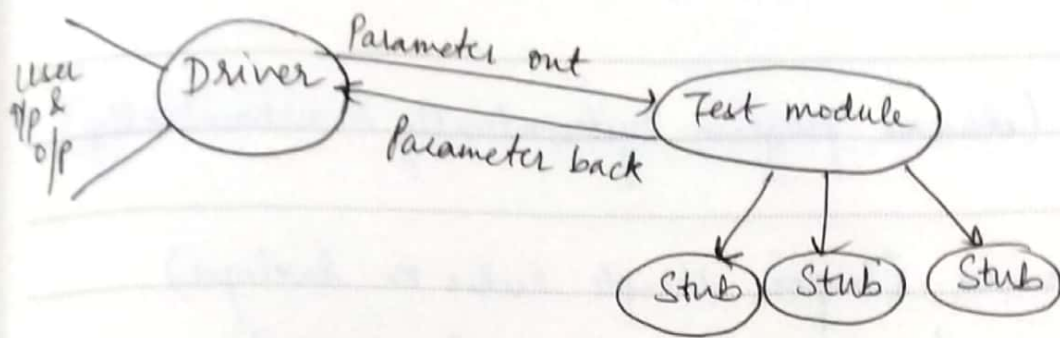 User
i/p &
o/p
Driver
Parameter out
Parameter back
Test module
Stub
Stub
Stub